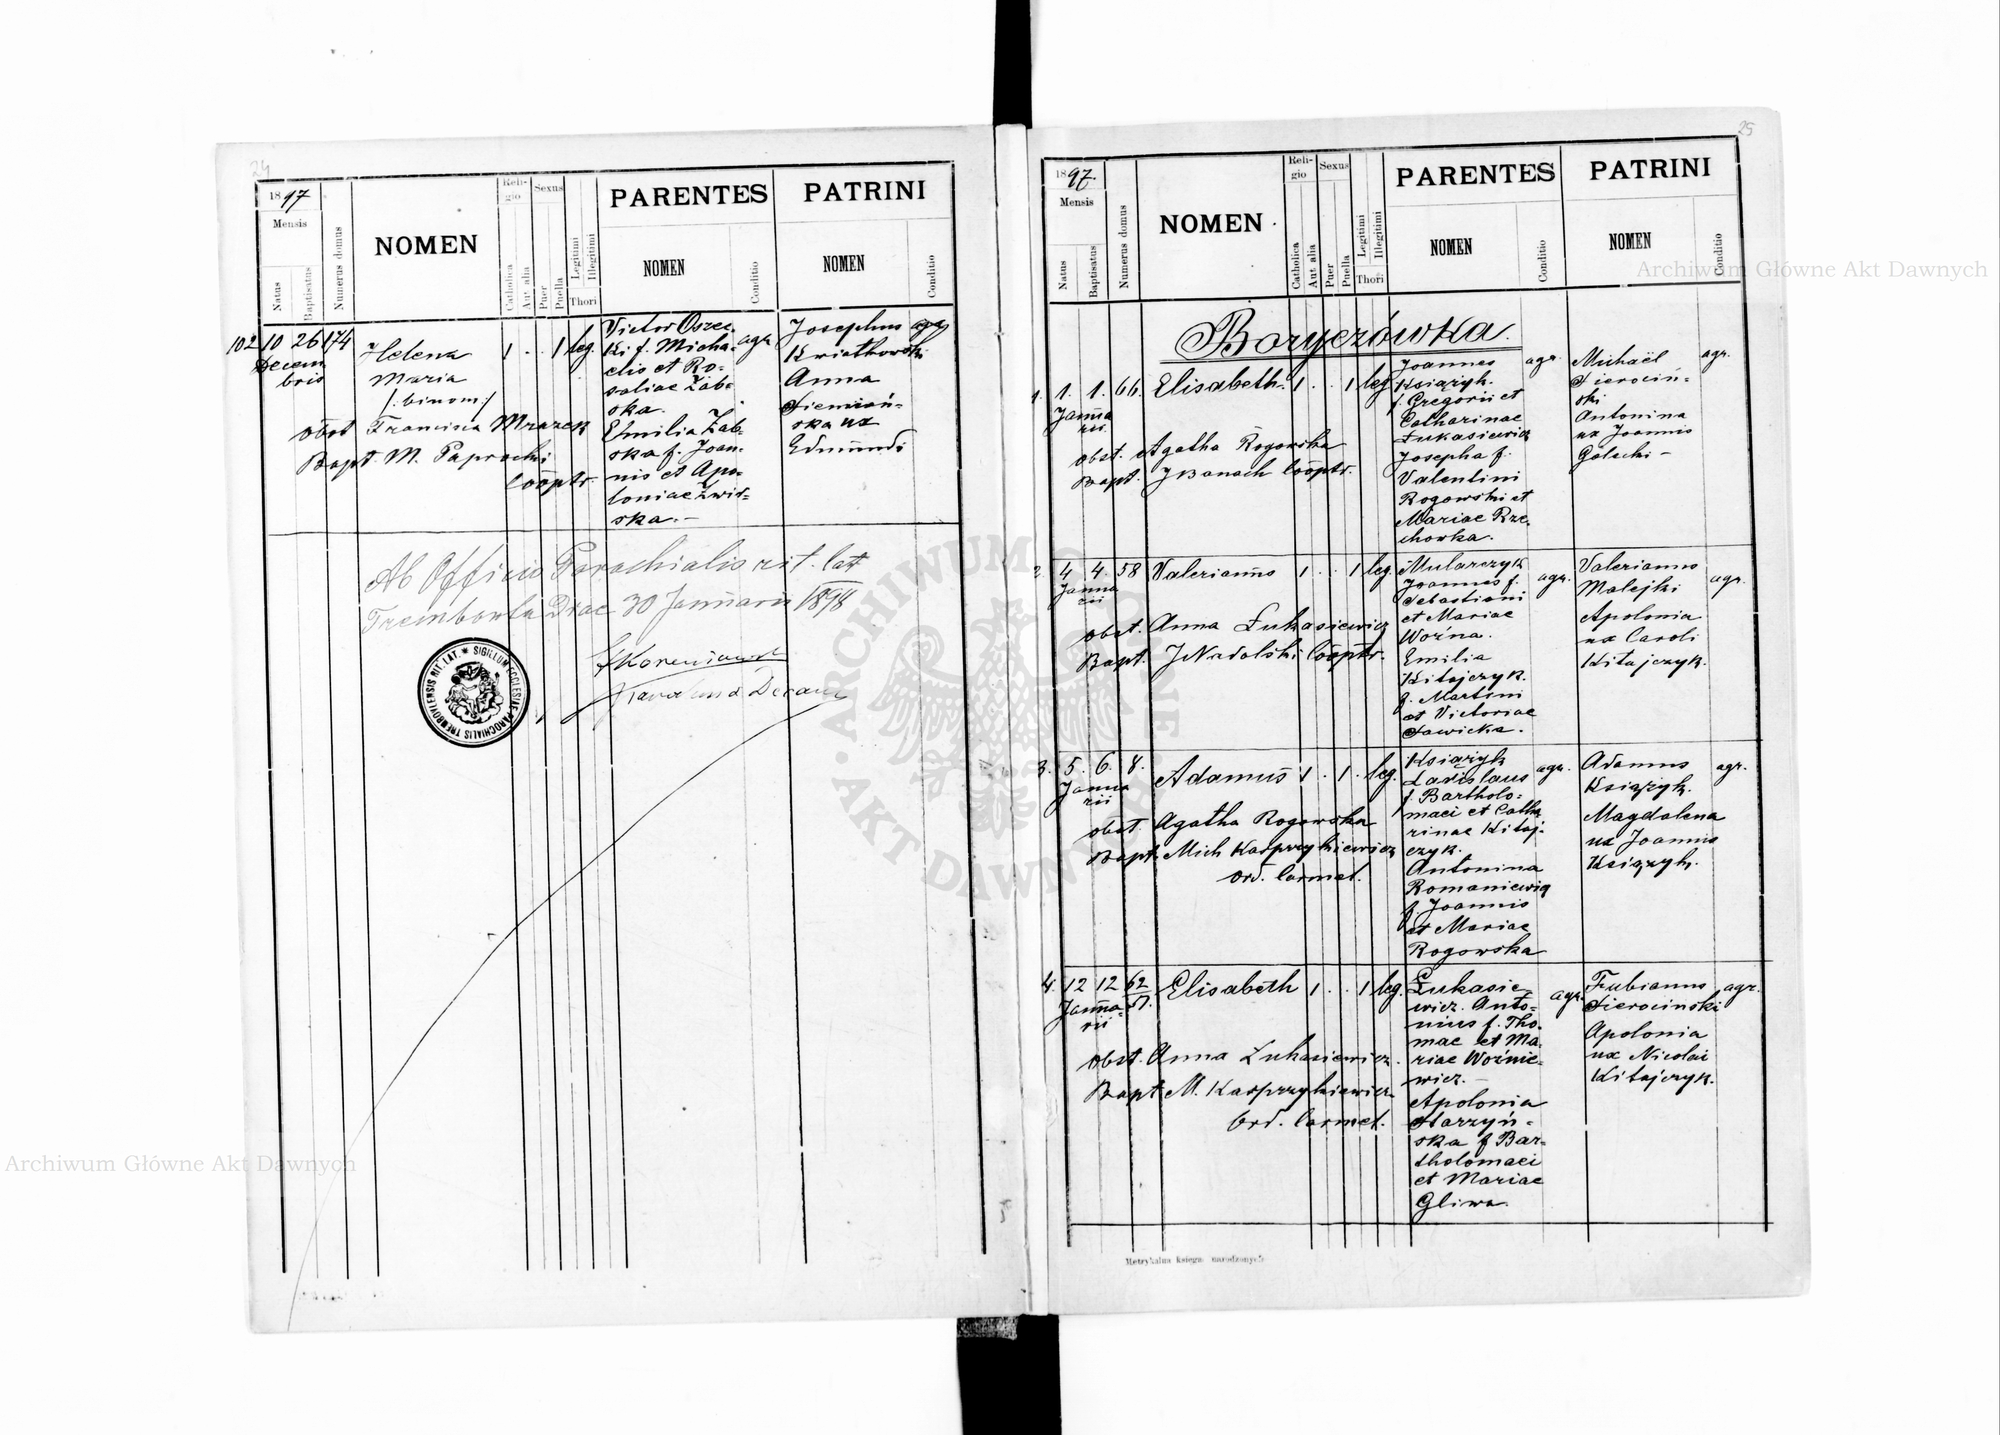 24
1897
Mensis
Natus
Baptisatus
Numerus domus
NOMEN
Reli-
gio
Catholica
Aut alia
Sexus
Puer
Puella
Legitimi
Illegitimi
Thori
PARENTES
NOMEN
Conditio
PATRINI
NOMEN
Conditio
102 10 26 174
Decem
bris
Helena
Maria
/: binom:/
1 . . 1 leg.
obst Francisca Mrazek
Bapt. M. Paprocki
Cooptr.
Victor Oszec-
ki f. Micha-
elis et Ro-
saliae Żab-
ska.
Emilia Żab-
ska f. Joan-
nis et Apo-
loniae Żwir-
ska.-
agr.
Josephus agr
Kwiatkowski
Anna
Siemion-
ska ux
Edmundi
Ab Officio Parochialis rit. lat
Trembowla Diae 30 Januarii 1898
Parochus Decan
SIGILLUM ECCLESIAE PAROCHIALIS TREMBOVLENSIS RIT. LAT.
25
1897.
Mensis
Natus
Baptisatus
Numerus domus
NOMEN
Reli-
gio
Catholica
Aut alia
Sexus
Puer
Puella
Legitimi
Illegitimi
Thori
PARENTES
NOMEN
Conditio
PATRINI
NOMEN
Conditio
Boryczówka.
1. 1. 1. 66. Elisabeth. 1 . . 1 leg
Janua
rii.
obst. Agatha Rogowska
Bapt. J Banach Cooptr.
Joannes
Książyk.
f. Gregorii et
Catharinae
Łukasiewicz
Josepha f.
Valentini
Rogowski et
Mariae Rze-
chowka.
agr.
Michaël
Sierociń-
ski
Antonina
ux Joannis
Golski -
agr.
2. 4 4. 58 Valerianus 1 . . 1 leg.
Janua
rii
obst. Anna Łukasiewicz
Bapt. J Nadolski Cooptr.
Mularczyk
Joannes f.
Sebastiani
et Mariae
Woźna.
Emilia
Kitajczyk.
f. Martini
et Victoriae
Sawicka.
agr.
Valerianus
Malejki
Apolonia
ux Caroli
Kitajczyk.
agr.
3. 5. 6. 8. Adamus 1 . 1 . leg.
Janua
rii
obst. Agatha Rogowska
Bapt. Mich Kasprzykiewicz
Ord. Carmel.
Książyk
Ladislaus
f. Bartholo-
maei et Catha
rinae Kitaj-
czyk.
Antonina
Romaniewicz
f. Joannis
et Mariae
Rogowska
agr.
Adamus
Książyk.
Magdalena
ux Joannis
Książyk.
agr.
4. 12 12 62 Elisabeth 1 . . 1 leg.
Janua-
rii
51.
obst. Anna Łukasiewicz.
Bapt M. Kasprzykiewicz
Ord. Carmel.
Łukasie-
wicz. Anto-
nius f. Tho-
mae et Ma-
riae Woźnie-
wicz.-
Apolonia
Starzyń-
ska f Bar-
tholomaei
et Mariae
Gliwa.
agr.
Fabianus
Sierociński
Apolonia
ux Nicolai
Kitajczyk.
agr.
Metrykalna księga narodzonych
ARCHIWUM GŁÓWNE AKT DAWNYCH
Archiwum Główne Akt Dawnych
Archiwum Główne Akt Dawnych